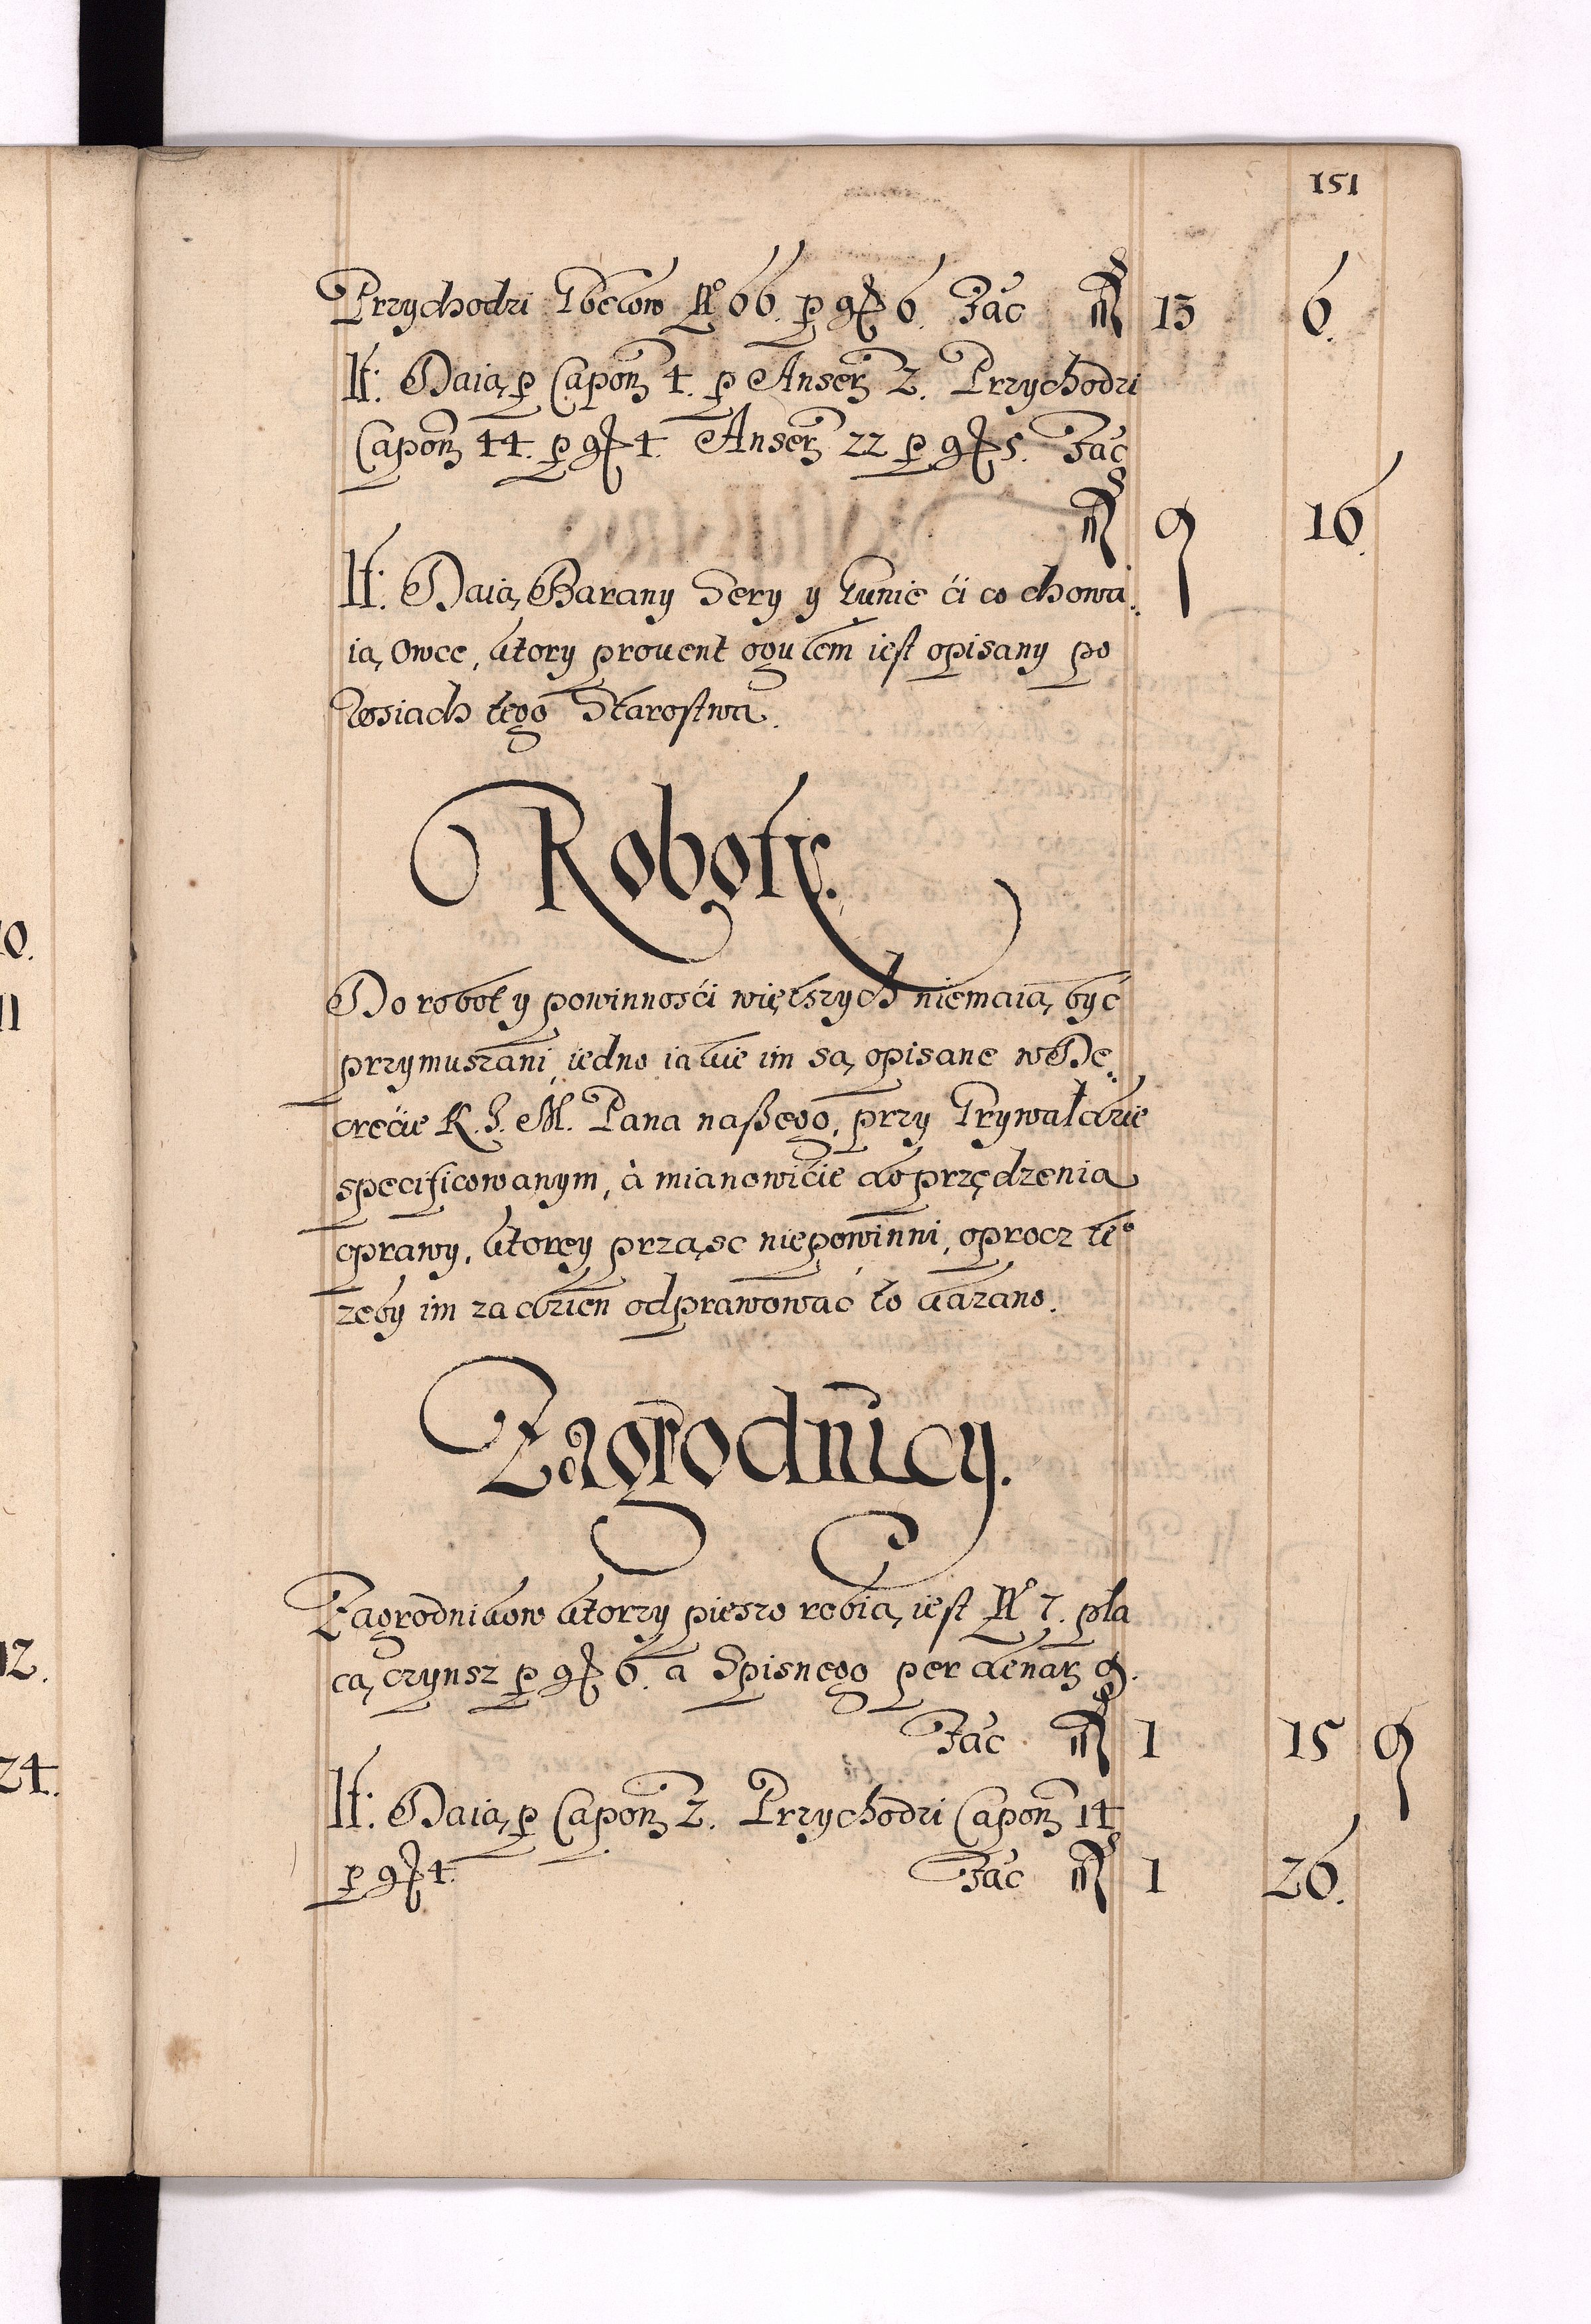 151
Przychodzi Łbełow No 66. p gr 6. Fac fl 13 6.
It: Daią p Capon 4. p Anser 2. Przychodzi
Capon 44. p gr 4. Anser 22 p gr 5. Fac
fl 9 16.
It: Daią Barany Sery y Łunie ći co chowa
ią owce, ktory prouent ogułem iest opisany po
wsiach tego Starostwa.
Roboty.
Do robot y powinnośći więtszych niemaią być
przymuszani, iedno iakie im są opisane w De
crecie K. J. M. Pana naßego, przy Trywałdzie
specificowanym, à mianowićie do przędzenia
oprawy, ktorey prząsc niepowinni, oprocz teo
zeby im za dzien odprawować to kazano.
Zagrodnicy.
Zagrodnikow ktorzy pieszo robią iest No 7. pła
cą czynsz p gr 6. a Spisnego per denar 9.
Fac fl 1 15 9
It: Daią p Capon 2. Przychodzi Capon 14
p gr 4. Fac fl 1 26.
10.
11
12.
24.